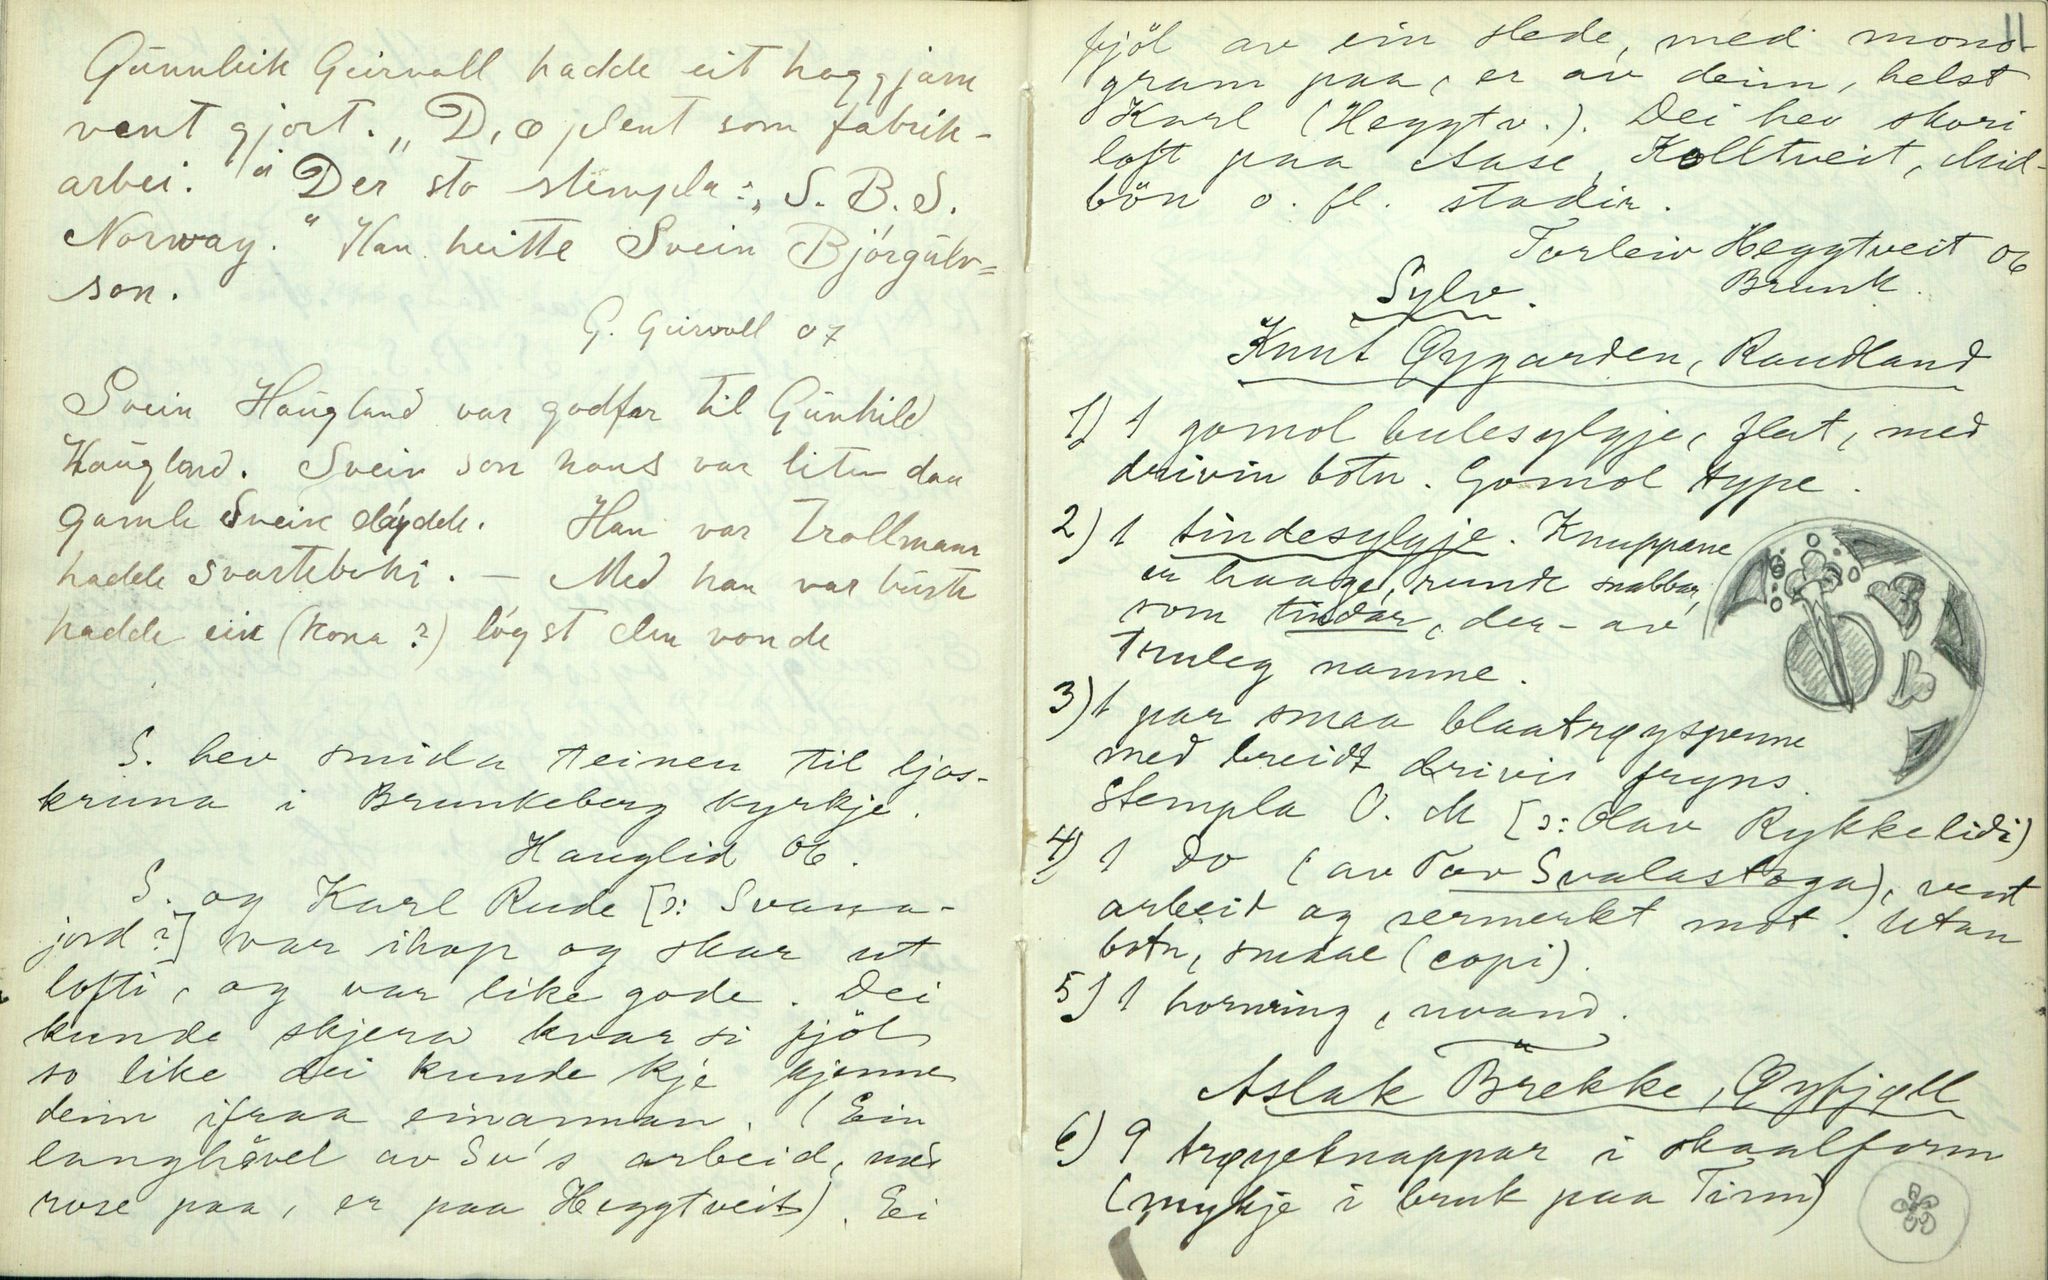 Gunnleik Geirvoll hadde eit hoggjarn
vent gjort. „D, æ plent som fabrik-
arbei." Der sto stempla: „S. B. S.
Norway." Han heitte Svein Björgulv=
son.
G. Geirvoll 07
Svein Haugland var godfar til Gunhild
Haugland. Svein son hans var liten daa
gamle Svein döydde. Han var Trollmann
hadde svarteboki. — Med han var burte
hadde ein (kona?) löyst den vonde
S. hev smida teinen til ljos-
kruna i Brunkeberg kyrkje.
Hauglid 06.
S. og Karl Rude [ɔ: Svana-
jord?] var ihop og skar ut
lofti, og var like gode. Dei
kunde skjera kvar si fjöl
so like dei kunde kje kjenne
deim ifraa einannan. (Ein
langhövel av Sv's arbeid, med
rose paa, er paa Heggtveit). Ei
11
fjöl av ein slede, med mono-
gram paa, er av deim, helst
Karl (Heggtv.). Dei hev skori
loft paa Aase, Kolltveit, Mid-
bön o. fl. stadir.
Torleiv Heggtveit 06
Brunk.
Sylv.
Knut Øygarden, Raudland
1) 1 gomol bulesylgje, flat, med
drivin botn. Gomol type.
2) 1 tindesylgje. Knuppane
er haage, runde snabbar,
som tindar, der-av
truleg namne.
3) 1 par smaa blaatrøyspenne
med breidt drivi fryns.
Stempla O. M [ɔ: Olav Rykkelidi)
4) 1 Do (av Tov Svalastoga), vent
arbeid og sermerkt mot. Utan
botn, smaae (copi).
5) 1 hornring, uvand.
Aslak Brekke, Øyfjell
6) 9 trøyeknappar i skaalform
(mykje i bruk paa Tinn)